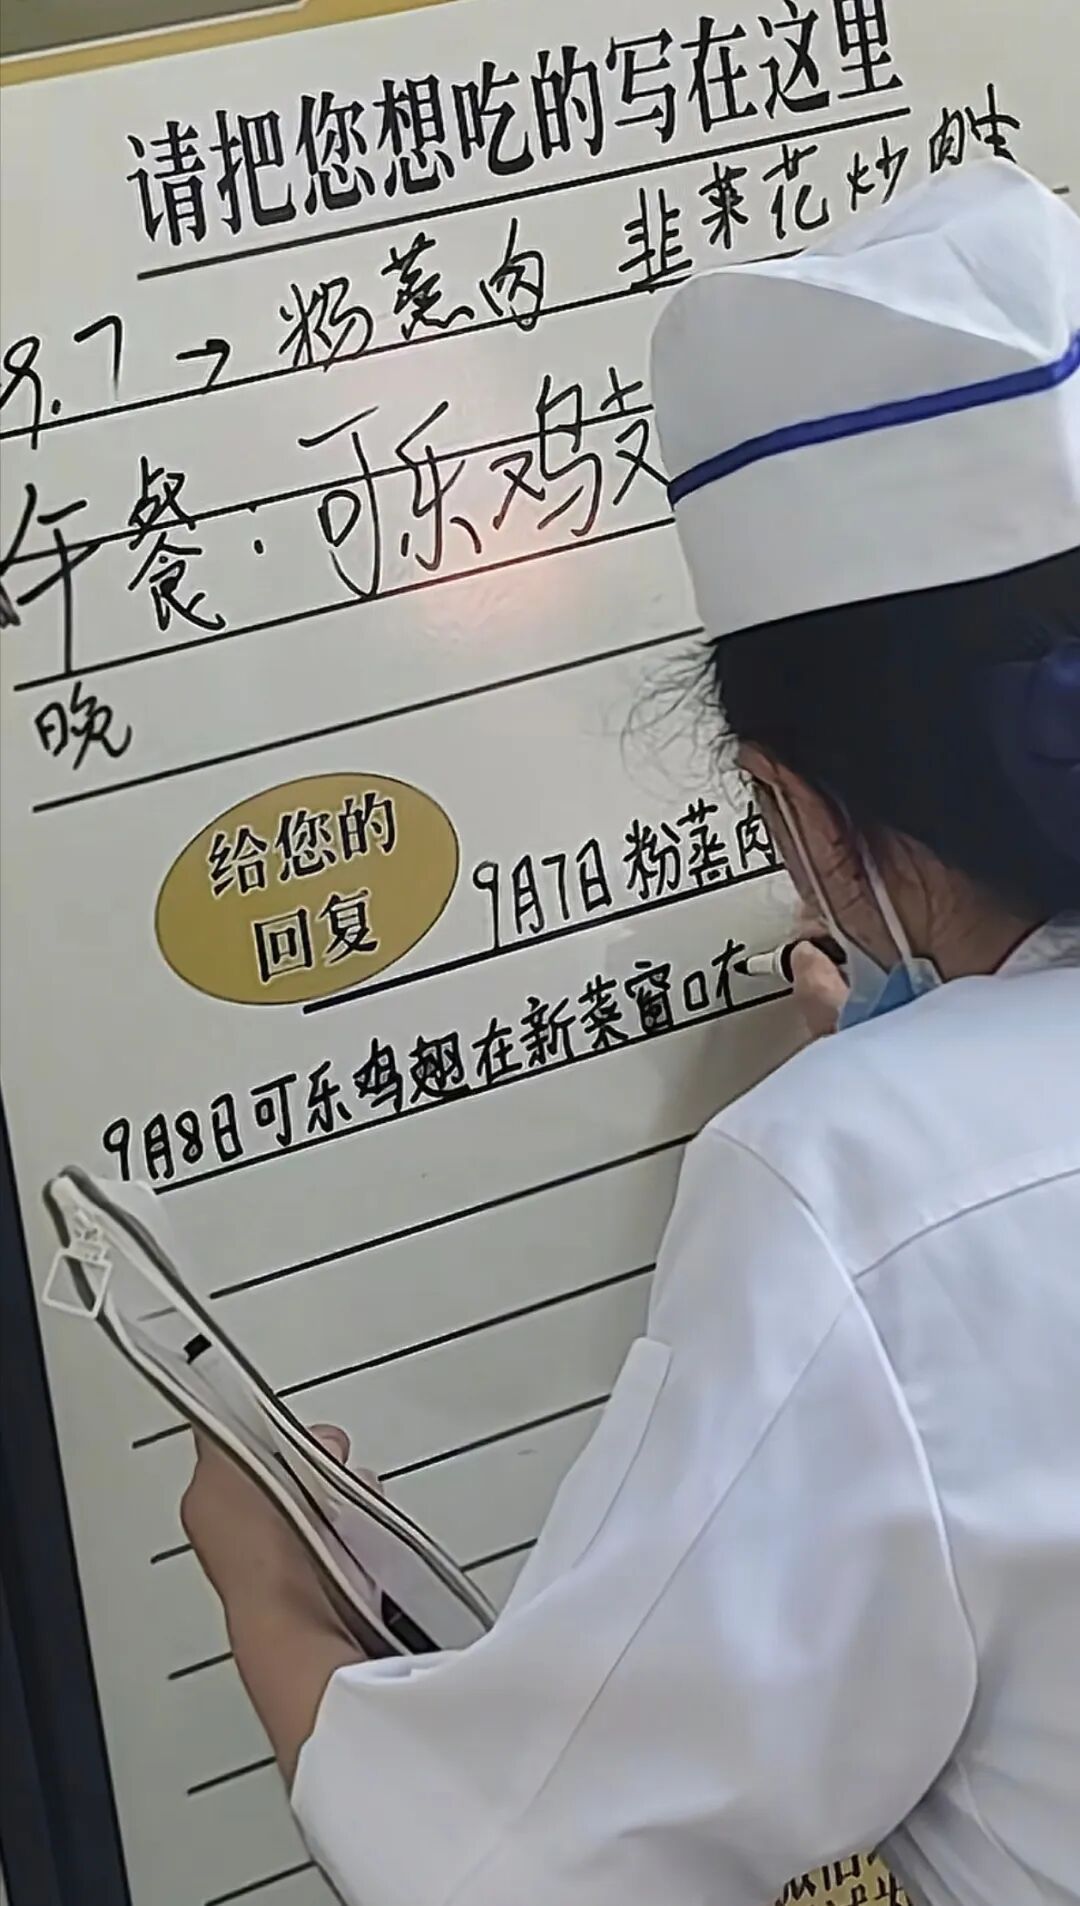 请把您想吃的写在这里
9.7→粉蒸肉 韭菜花炒
午餐:可乐鸡
晚
给您的
回复
9月7日粉蒸肉
9月8日可乐鸡翅在新菜窗口